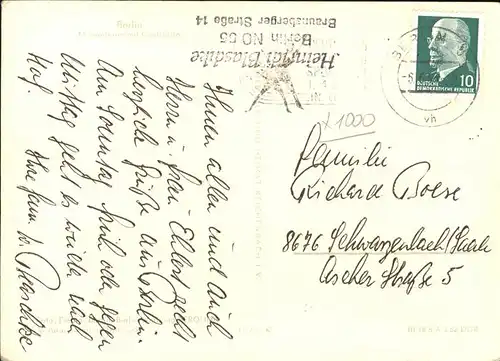 Berlin
Heinrich Blaschke
Berlin NO 55
Braunsberger Straße 14
Ihnen allen und auch
Herrn u. Frau Ehlert recht
herzliche Grüße aus Berlin.
Am Sonntag früh oder gegen
Mittag geht es wieder nach
Hof.
Ihre Fam. H. Blaschke
10
DEUTSCHE
DEMOKRATISCHE REPUBLIK
vh
x1000
Familie
Richard Boese
8676 Schwarzenbach/Saale
Ascher Straße 5